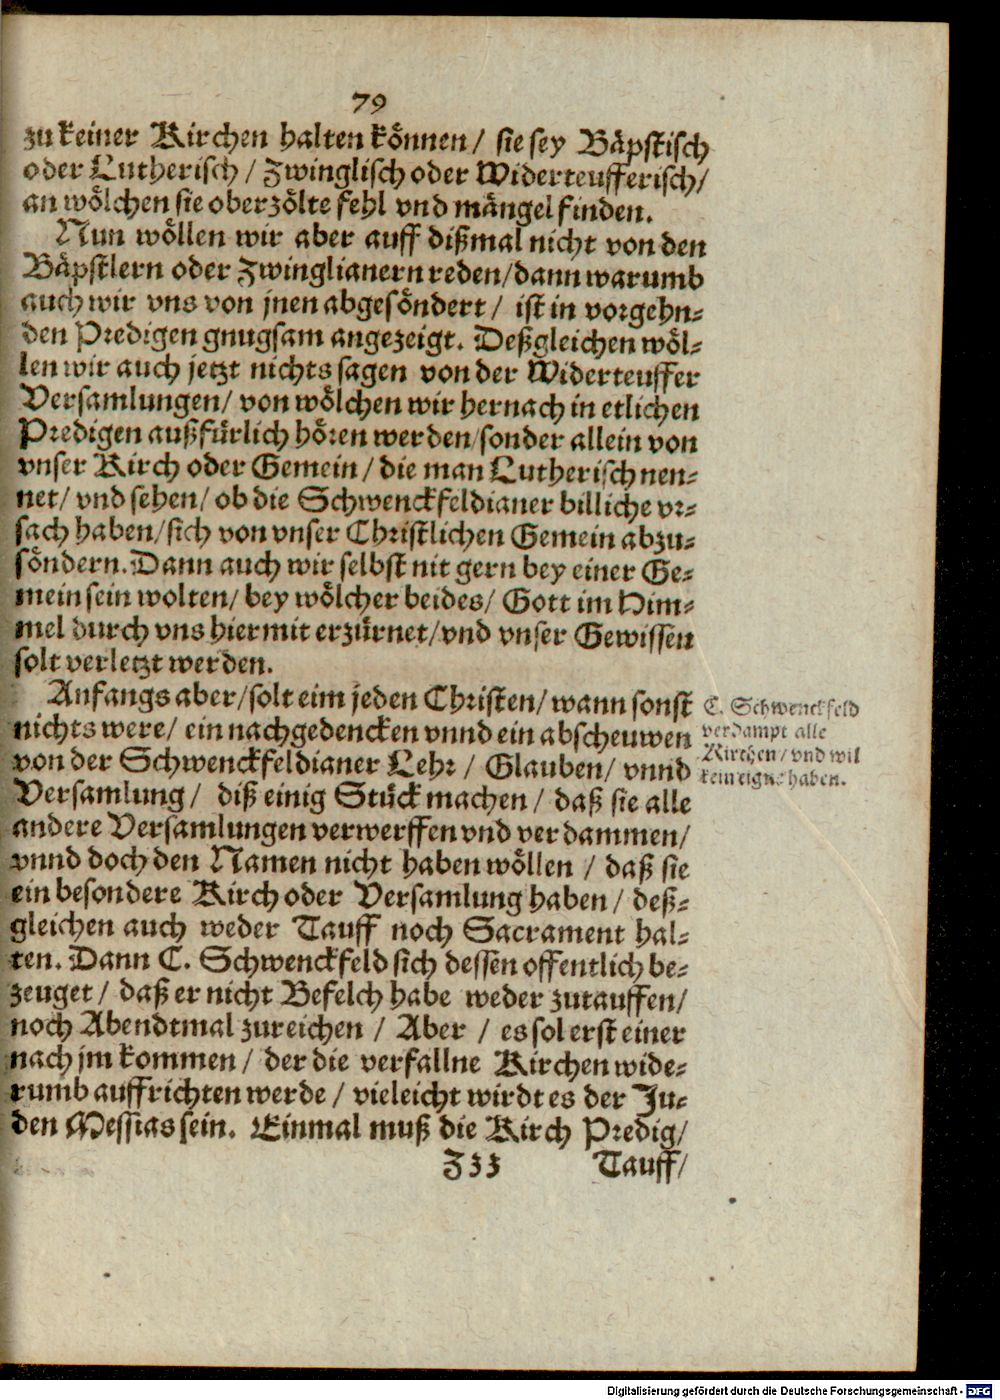 79
zu keiner Kirchen halten können / sie sey Bäpstisch
oder Lutherisch / Zwinglisch oder Widerteufferisch /
an wölchen sie oberzölte fehl vnd mängel finden.
Nun wöllen wir aber auff dißmal nicht von den
Bäpstlern oder Zwinglianern reden / dann warumb
auch wir vns von jnen abgesöndert / ist in vorgehn⸗
den Predigen gnugsam angezeigt. Deßgleichen wöl⸗
len wir auch jetzt nichts sagen von der Widerteuffer
Versamlungen / von wölchen wir hernach in etlichen
Predigen außfürlich hören werden / sonder allein von
vnser Kirch oder Gemein / die man Lutherisch nen⸗
net / vnd sehen / ob die Schwenckfeldianer billiche vr⸗
sach haben / sich von vnser Christlichen Gemein abzu⸗
söndern. Dann auch wir selbst nit gern bey einer Ge⸗
mein sein wolten / bey wölcher beides / Gott im Him⸗
mel durch vns hiermit erzürnet / vnd vnser Gewissen
solt verletzt werden.
Anfangs aber / solt eim jeden Christen / wann sonst
nichts were / ein nachgedencken vnnd ein abscheuwen
von der Schwenckfeldianer Lehr / Glauben / vnnd
Versamlung / diß einig Stück machen / daß sie alle
andere Versamlungen verwerffen vnd verdammen /
vnnd doch den Namen nicht haben wöllen / daß sie
ein besondere Kirch oder Versamlung haben / deß⸗
gleichen auch weder Tauff noch Sacrament hal⸗
ten. Dann C. Schwenckfeld sich dessen offentlich be⸗
zeuget / daß er nicht Befelch habe weder zutauffen /
noch Abendtmal zureichen / Aber / es sol erst einer
nach jm kommen / der die verfallne Kirchen wide⸗
rumb auffrichten werde / vieleicht wirdt es der Ju⸗
den Messias sein. Einmal muß die Kirch Predig /
Z 3 3 Tauff /
C. Schwenckfeld
verdampt alle
Kirchen / vnd wil
kein eigne haben.
Digitalisierung gefördert durch die Deutsche Forschungsgemeinschaft - DFG